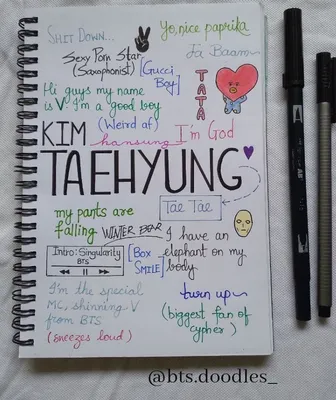 SHIT DOWN...
Yo, nice paprika
Sexy Porn Star
(Saxophonist)
[Gucci
Boy]
Ja Baam~
TATA
Hi guys my name
is V I'm a good boy
(Weird af)
I'm God
KIM
hansung
TAEHYUNG
Tae Tae
my pants are
falling
WINTER BEAR
I have an
elephant on my
body
Intro: Singularity
BTS
[Box
SMILE]
I'm the special
MC, shinning V
from BTS
(sneezes loud)
turn up~
(biggest fan of
cypher)
@bts.doodles_